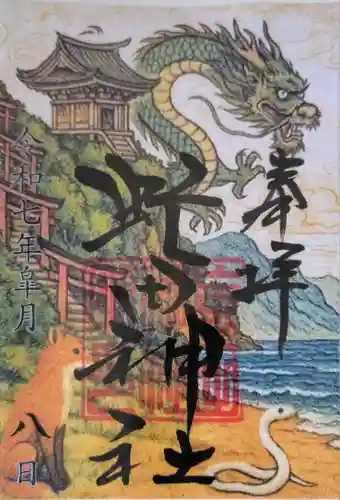 奉拝
虻田神社
令和七年皐月
八日